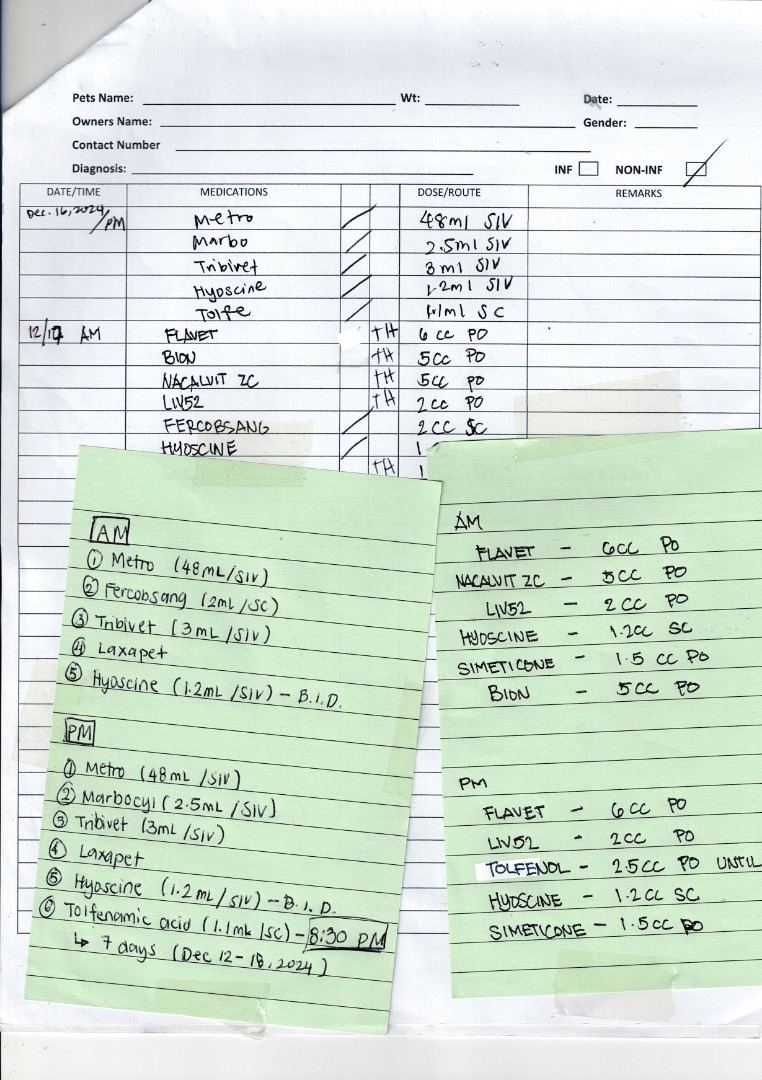 Pets Name: Wt: Date:
Owners Name: Gender:
Contact Number
Diagnosis: INF NON-INF
DATE/TIME MEDICATIONS DOSE/ROUTE REMARKS
Dec. 16, 2024/PM Metro 48ml SIV
Marbo 2.5ml SIV
Tribivet 3ml SIV
Hyoscine 1.2ml SIV
Tolfe 1.1ml SC
12/17 AM FLAVET TH 6 cc PO
BION TH 5cc PO
NACALVIT ZC TH 5cc PO
LIV52 TH 2cc PO
FERCOBSANG 2cc SC
HYOSCINE 1
TH 1
AM
① Metro (48mL/SIV)
② Fercobsang (2mL/SC)
③ Tribivet (3mL/SIV)
④ Laxapet
⑤ Hyoscine (1.2mL/SIV) - B.I.D.
PM
① Metro (48mL/SIV)
② Marbocyl (2.5mL/SIV)
③ Tribivet (3mL/SIV)
④ Laxapet
⑤ Hyoscine (1.2mL/SIV) - B.I.D.
⑥ Tolfenamic acid (1.1mL/SC) - 8:30 PM
↳ 7 days (Dec 12-18, 2024)
AM
FLAVET - 6cc PO
NACALVIT ZC - 5cc PO
LIV52 - 2cc PO
HYOSCINE - 1.2cc SC
SIMETICONE - 1.5cc PO
BION - 5cc PO
PM
FLAVET - 6cc PO
LIV52 - 2cc PO
TOLFENOL - 2.5cc PO UNTIL
HYOSCINE - 1.2cc SC
SIMETICONE - 1.5cc PO